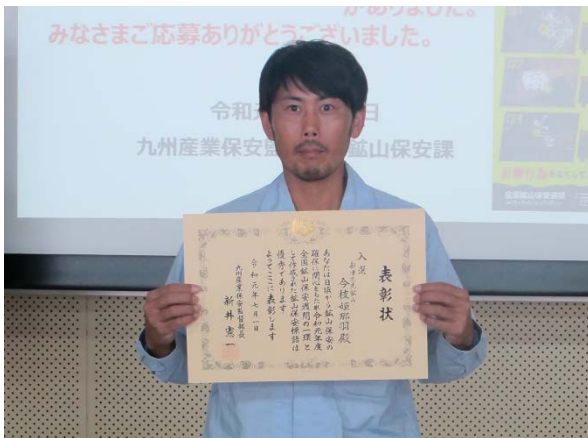 がありました。
みなさまご応募ありがとうございました。
令和元
日
九州産業保安監
鉱山保安課
全国鉱山保安週間
表彰状
入選
今枝媛那羽殿
あなたは日頃から鉱山保安の
確保に関心をもたれ令和元年度
全国鉱山保安週間の一環と
して作成された鉱山保安標語は
優秀であります
よってここに表彰します
令和元年七月一日
九州産業保安監督部長
新井憲一